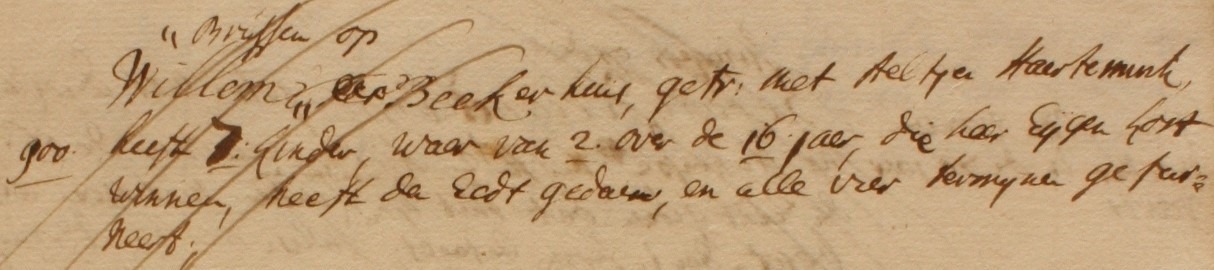 " Brussen op
Willem " Beeker huis, getr: met Aeltjen Haertemink,
900. heeft 7: kinder, waer van 2. over de 16 jaer, die haer Eijgen kost
winnen, heeft den Eedt gedaen, en alle vier termynen gefur=
neert.